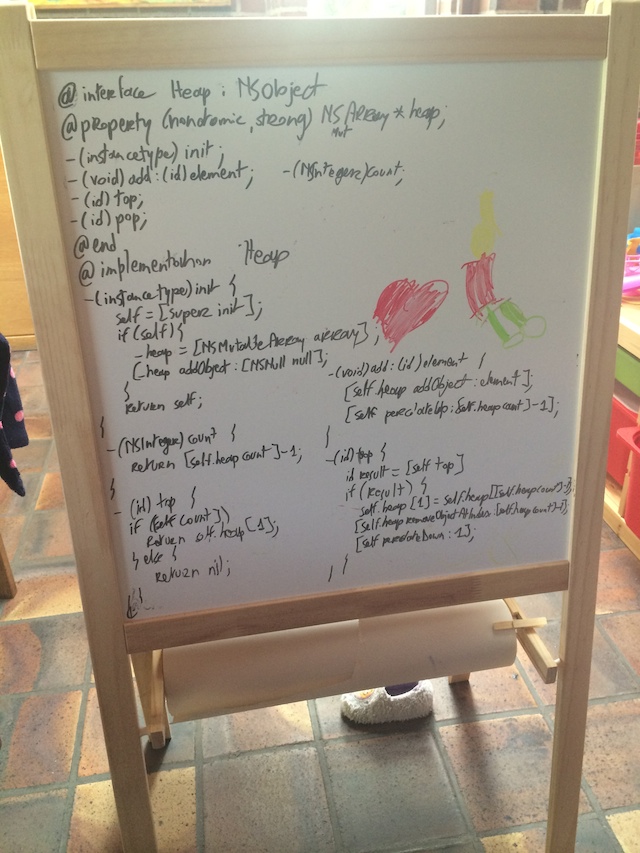 @interface Heap : NSObject
@property (nonatomic, strong) NSArray * heap;
Mut
-(instancetype) init;
-(void) add:(id) element; -(NSInteger) count;
-(id) top;
-(id) pop;
@end
@implementation Heap
-(instancetype) init {
self = [super init];
if (self) {
_heap = [NSMutableArray array];
[_heap addObject: [NSNull null];
}
return self;
}
-(NSInteger) count {
return [self.heap count]-1;
}
-(id) top {
if (self count])
return self.heap[1];
} else {
return nil;
}
-(void) add: (id) element {
[self.heap addObject: element];
[self percolateUp: [self.heap count]-1];
}
-(id) pop {
id result = [self top]
if (result) {
self.heap [1] = self.heap[[self.heap count]-1];
[self.heap removeObjectAtIndex: [self.heap count]-1];
[self percolateDown: 1];
} }